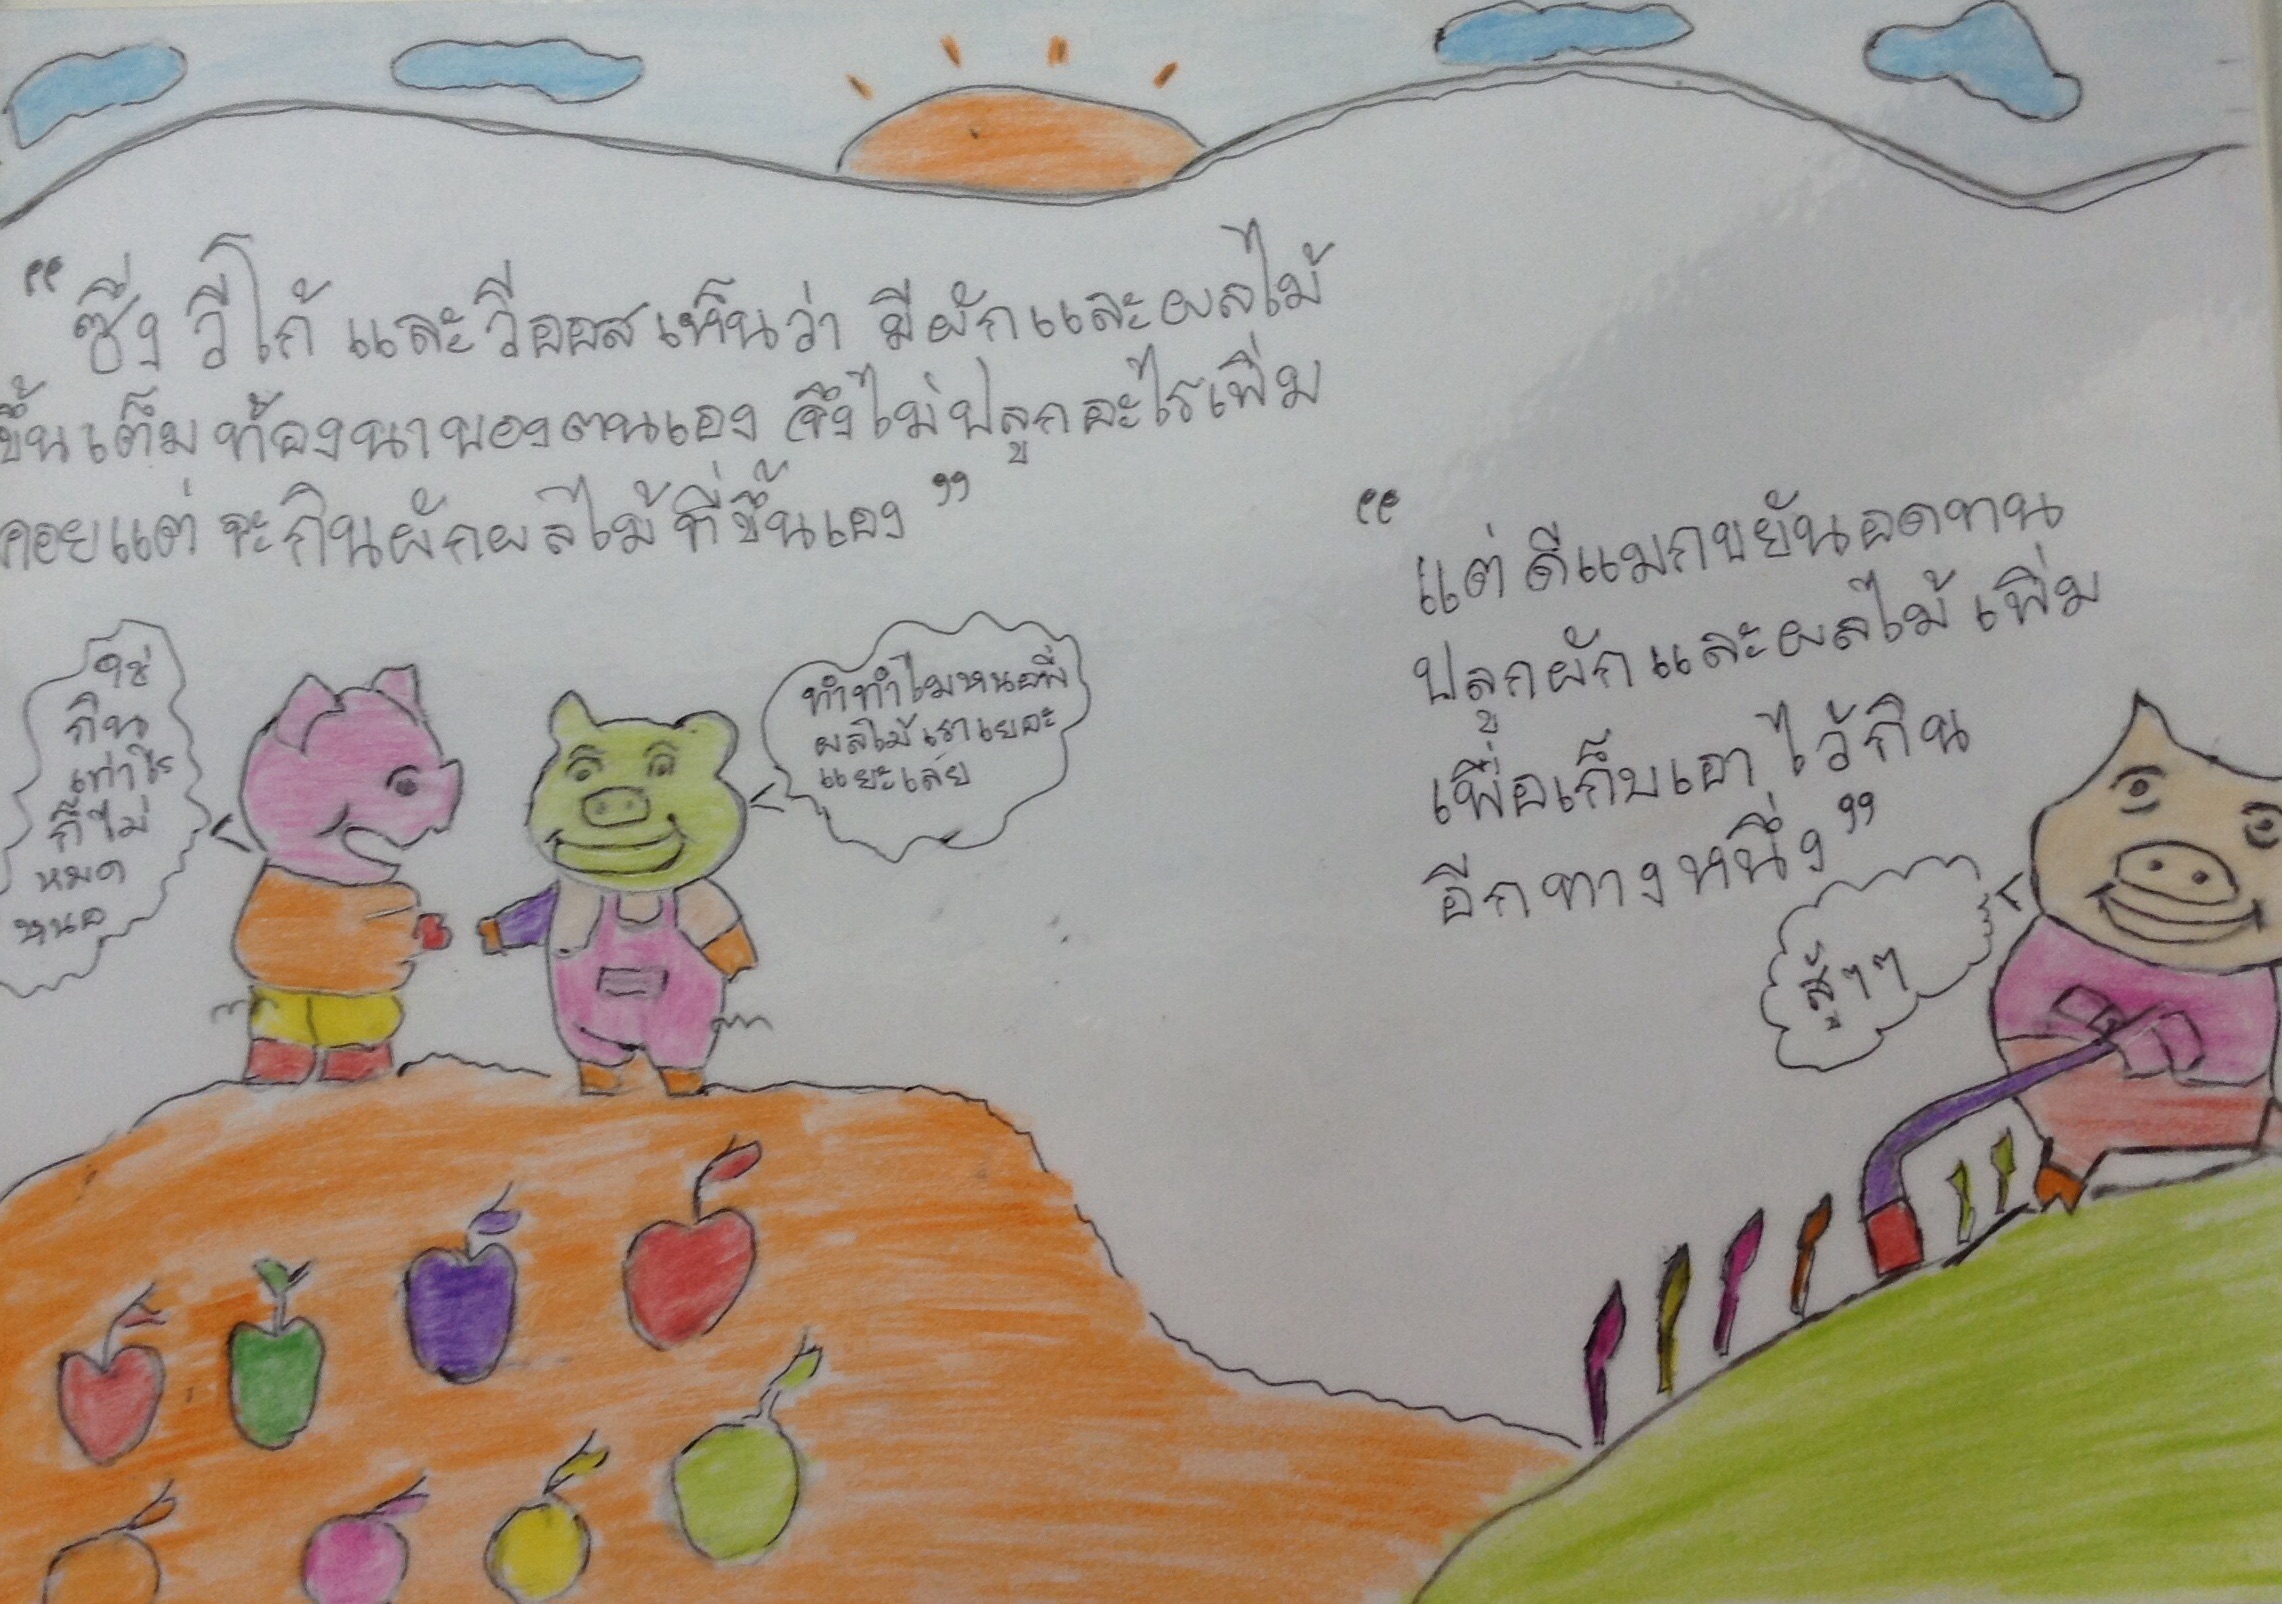 “ซึ่ง วีโก้ และวีออส เห็นว่า มีผักและผลไม้
ขึ้นเต็มท้องนาของตนเอง จึงไม่ปลูกอะไรเพิ่ม
คอยแต่ จะกินผักผลไม้ที่ขึ้นเอง”
“แต่ ดีแมกขยันอดทน
ปลูกผักและผลไม้ เพิ่ม
เพื่อเก็บเอาไว้กิน
อีกทางหนึ่ง”
ใช่
กิน
เท่าไร
ก็ไม่
หมด
หนอ
ทำทำไมหนอพี่
ผลไม้เราเยอะ
แยะเลย
สู้ๆๆ